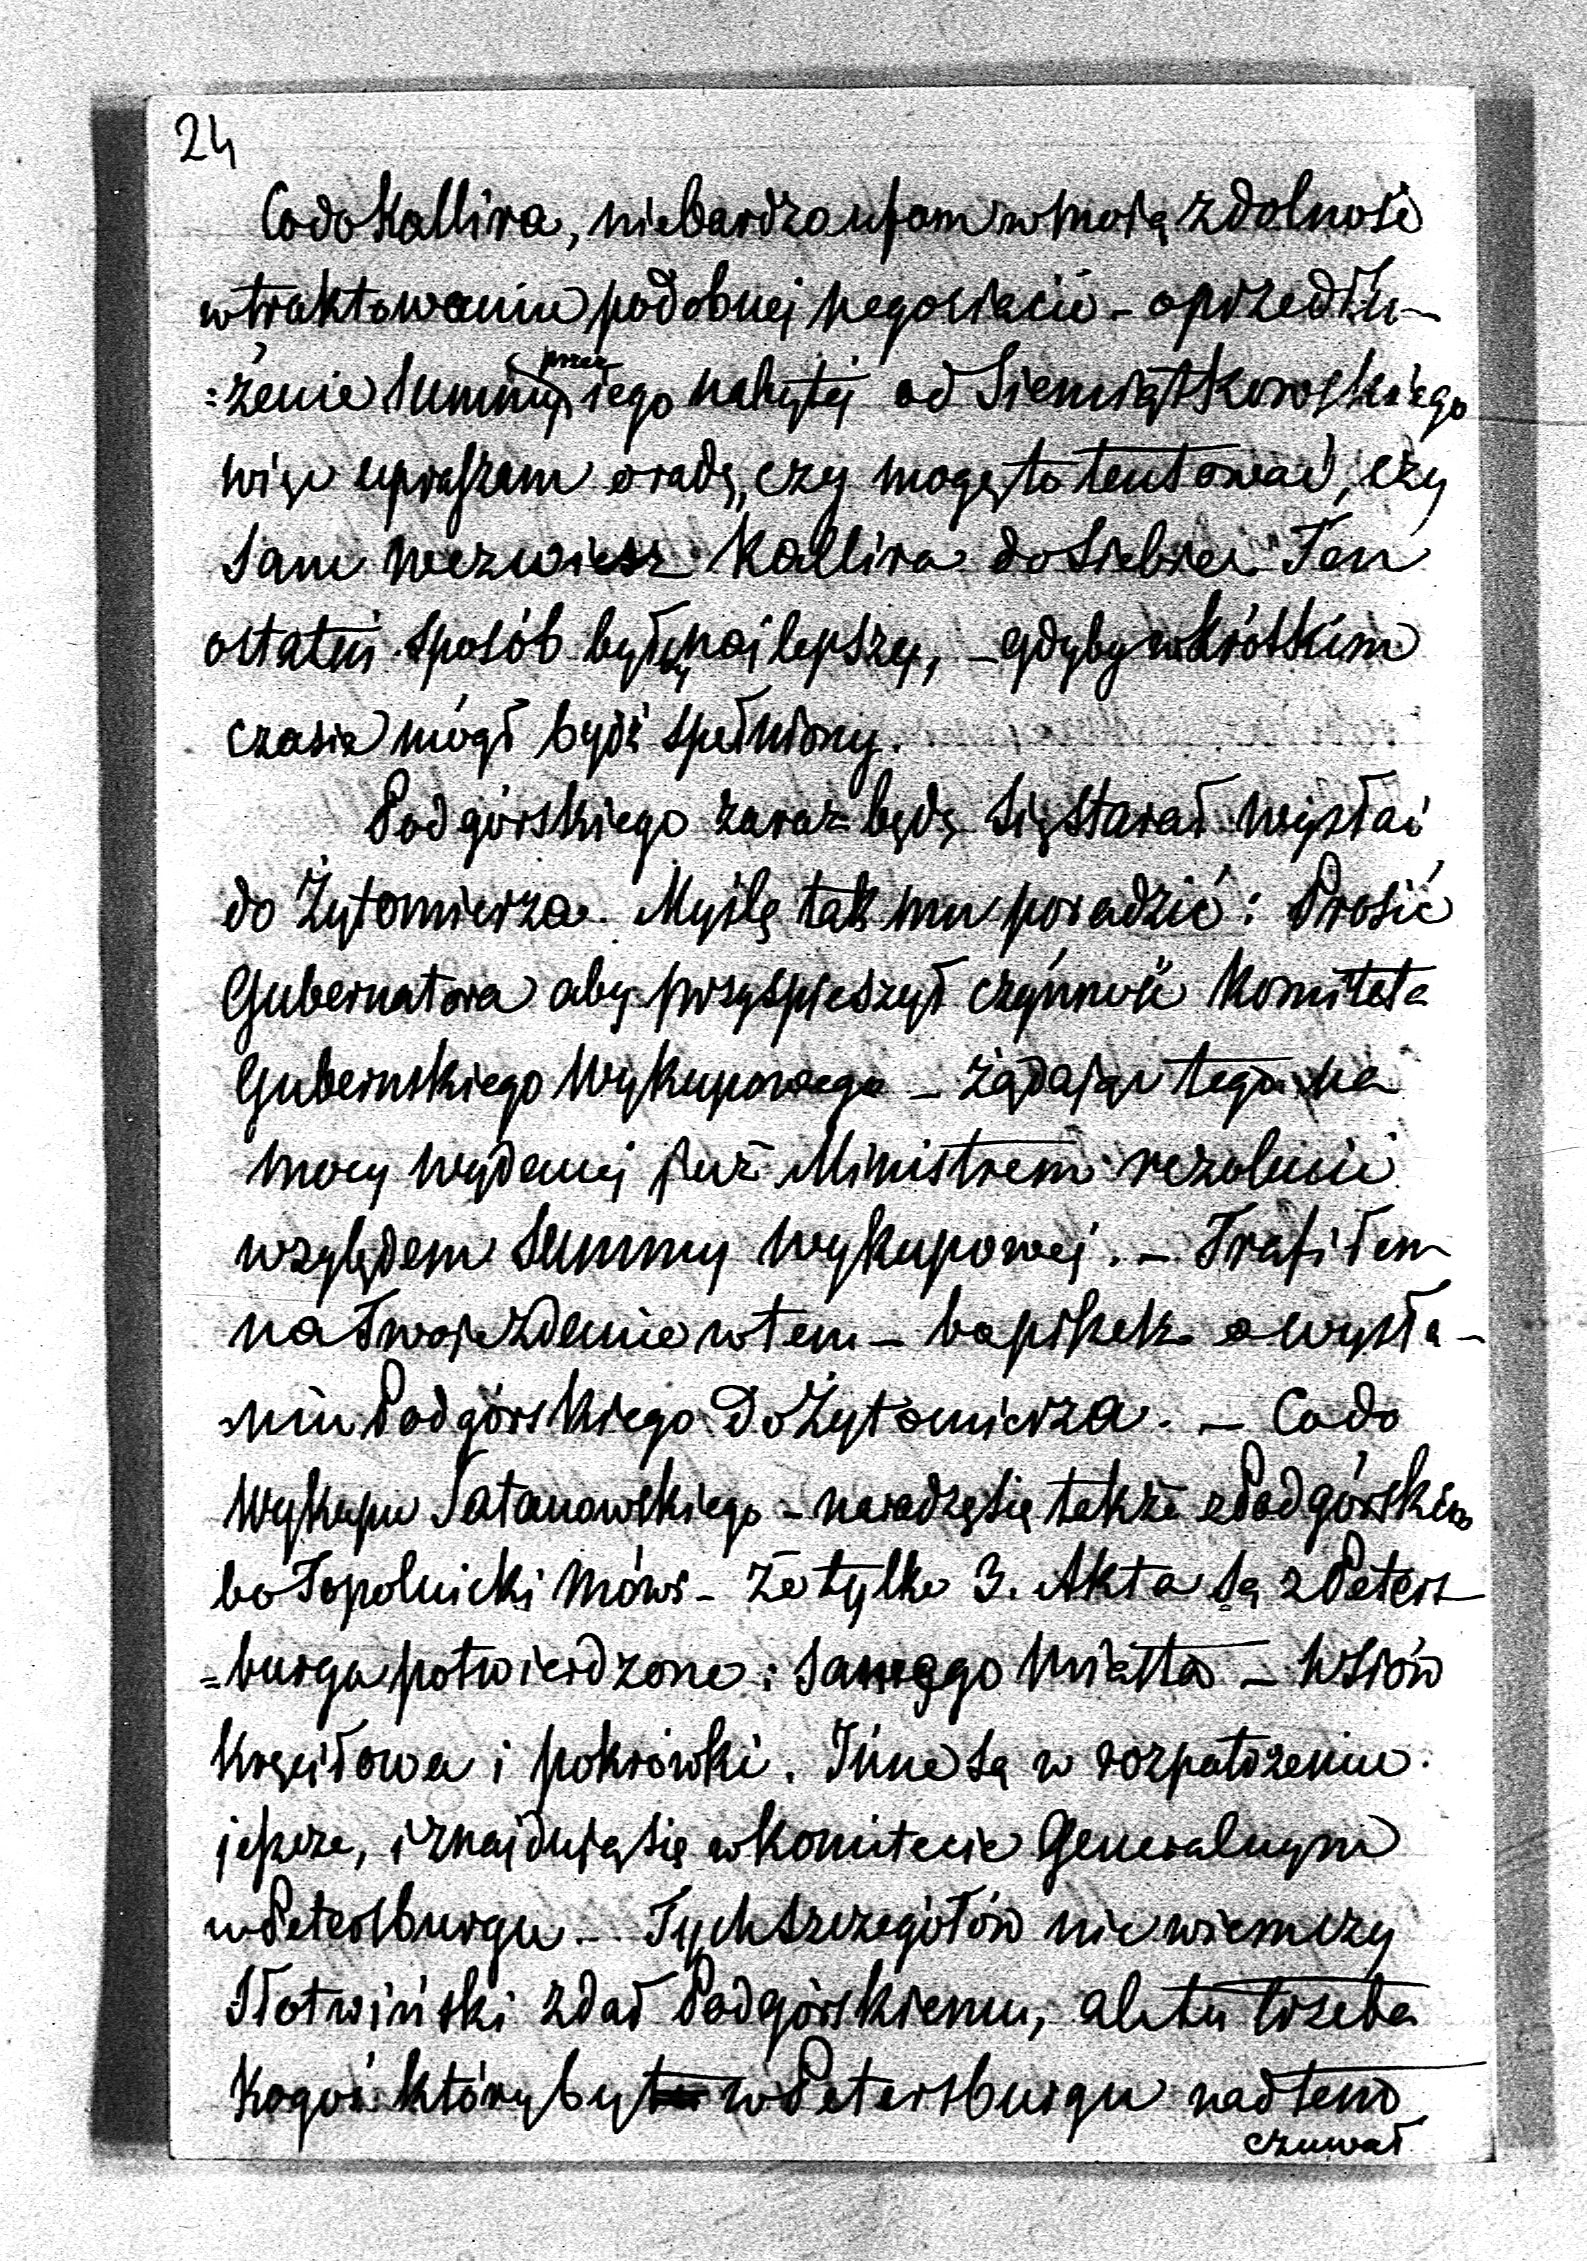 24
Co do Kallira, nie bardzo ufam w moią zdolność
w traktowaniu podobnej negociacii – o przedłu-
=żenie Summy przez iego nabytéj od Siemiątkowskiego
więc upraszam o radę, czy mogę to tentować, czy
Sam wezwiesz Kallira do Siebie. Ten
ostatni sposób byłby najlepszy, – gdyby w krótkim
czasie mógł bydź spełniony.
Podgórskiego zaraz będę się starał wysłać
do Żytomierza. Myślę tak mu poradzić: Prosić
Gubernatora aby przyspieszył czynność Komiteta
Gubernskiego Wykupowego – żądając tego na
mocy wydanej już Ministrem rezolucii
względem Summy wykupowej. – Trafiłem
na Twoje zdanie w tem – bo piszesz o wysła-
niu Podgórskiego do Żytomierza. – Co do
Wykupu Satanowskiego – naradzę się także z Podgórskim
bo Topolnicki mówi – że tylko 3. Akta są z Peters
=burga potwierdzone: Samego Miasta – Wsiów
Kręciłowa i pokrówki. Inne są w rozpatrzeniu
jeszcze, i znajduią się w Komitecie Generalnym
w Petersburgu – Tych szczegółów nie wiem czy
Słotwiński zdał Podgórskiemu, ale tu trzeba
Kogoś któryby w Petersburgu nad tem
czuwał